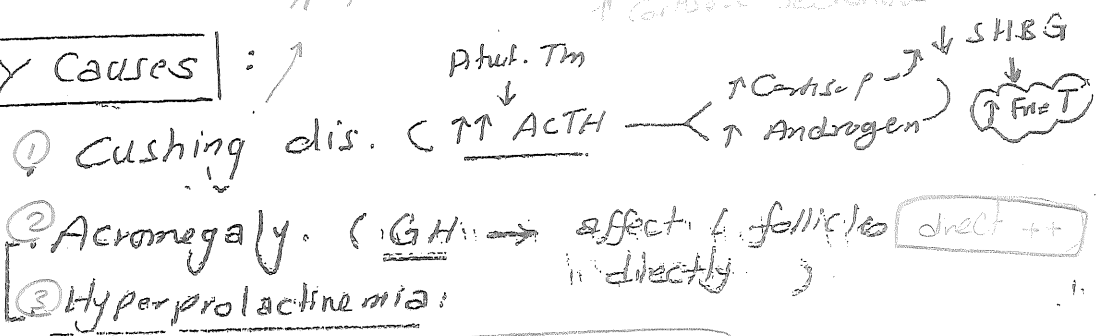 ↑ Cortisol
y Causes :
Pituit. Tm
↓
① Cushing dis. ( ↑↑ ACTH — < ↑ Cortisol → ↓ SHBG
↑ Androgen )
↓
↑ Free T
② Acromegaly. ( GH → affect follicles direct ++
indirectly )
③ Hyperprolactinemia: